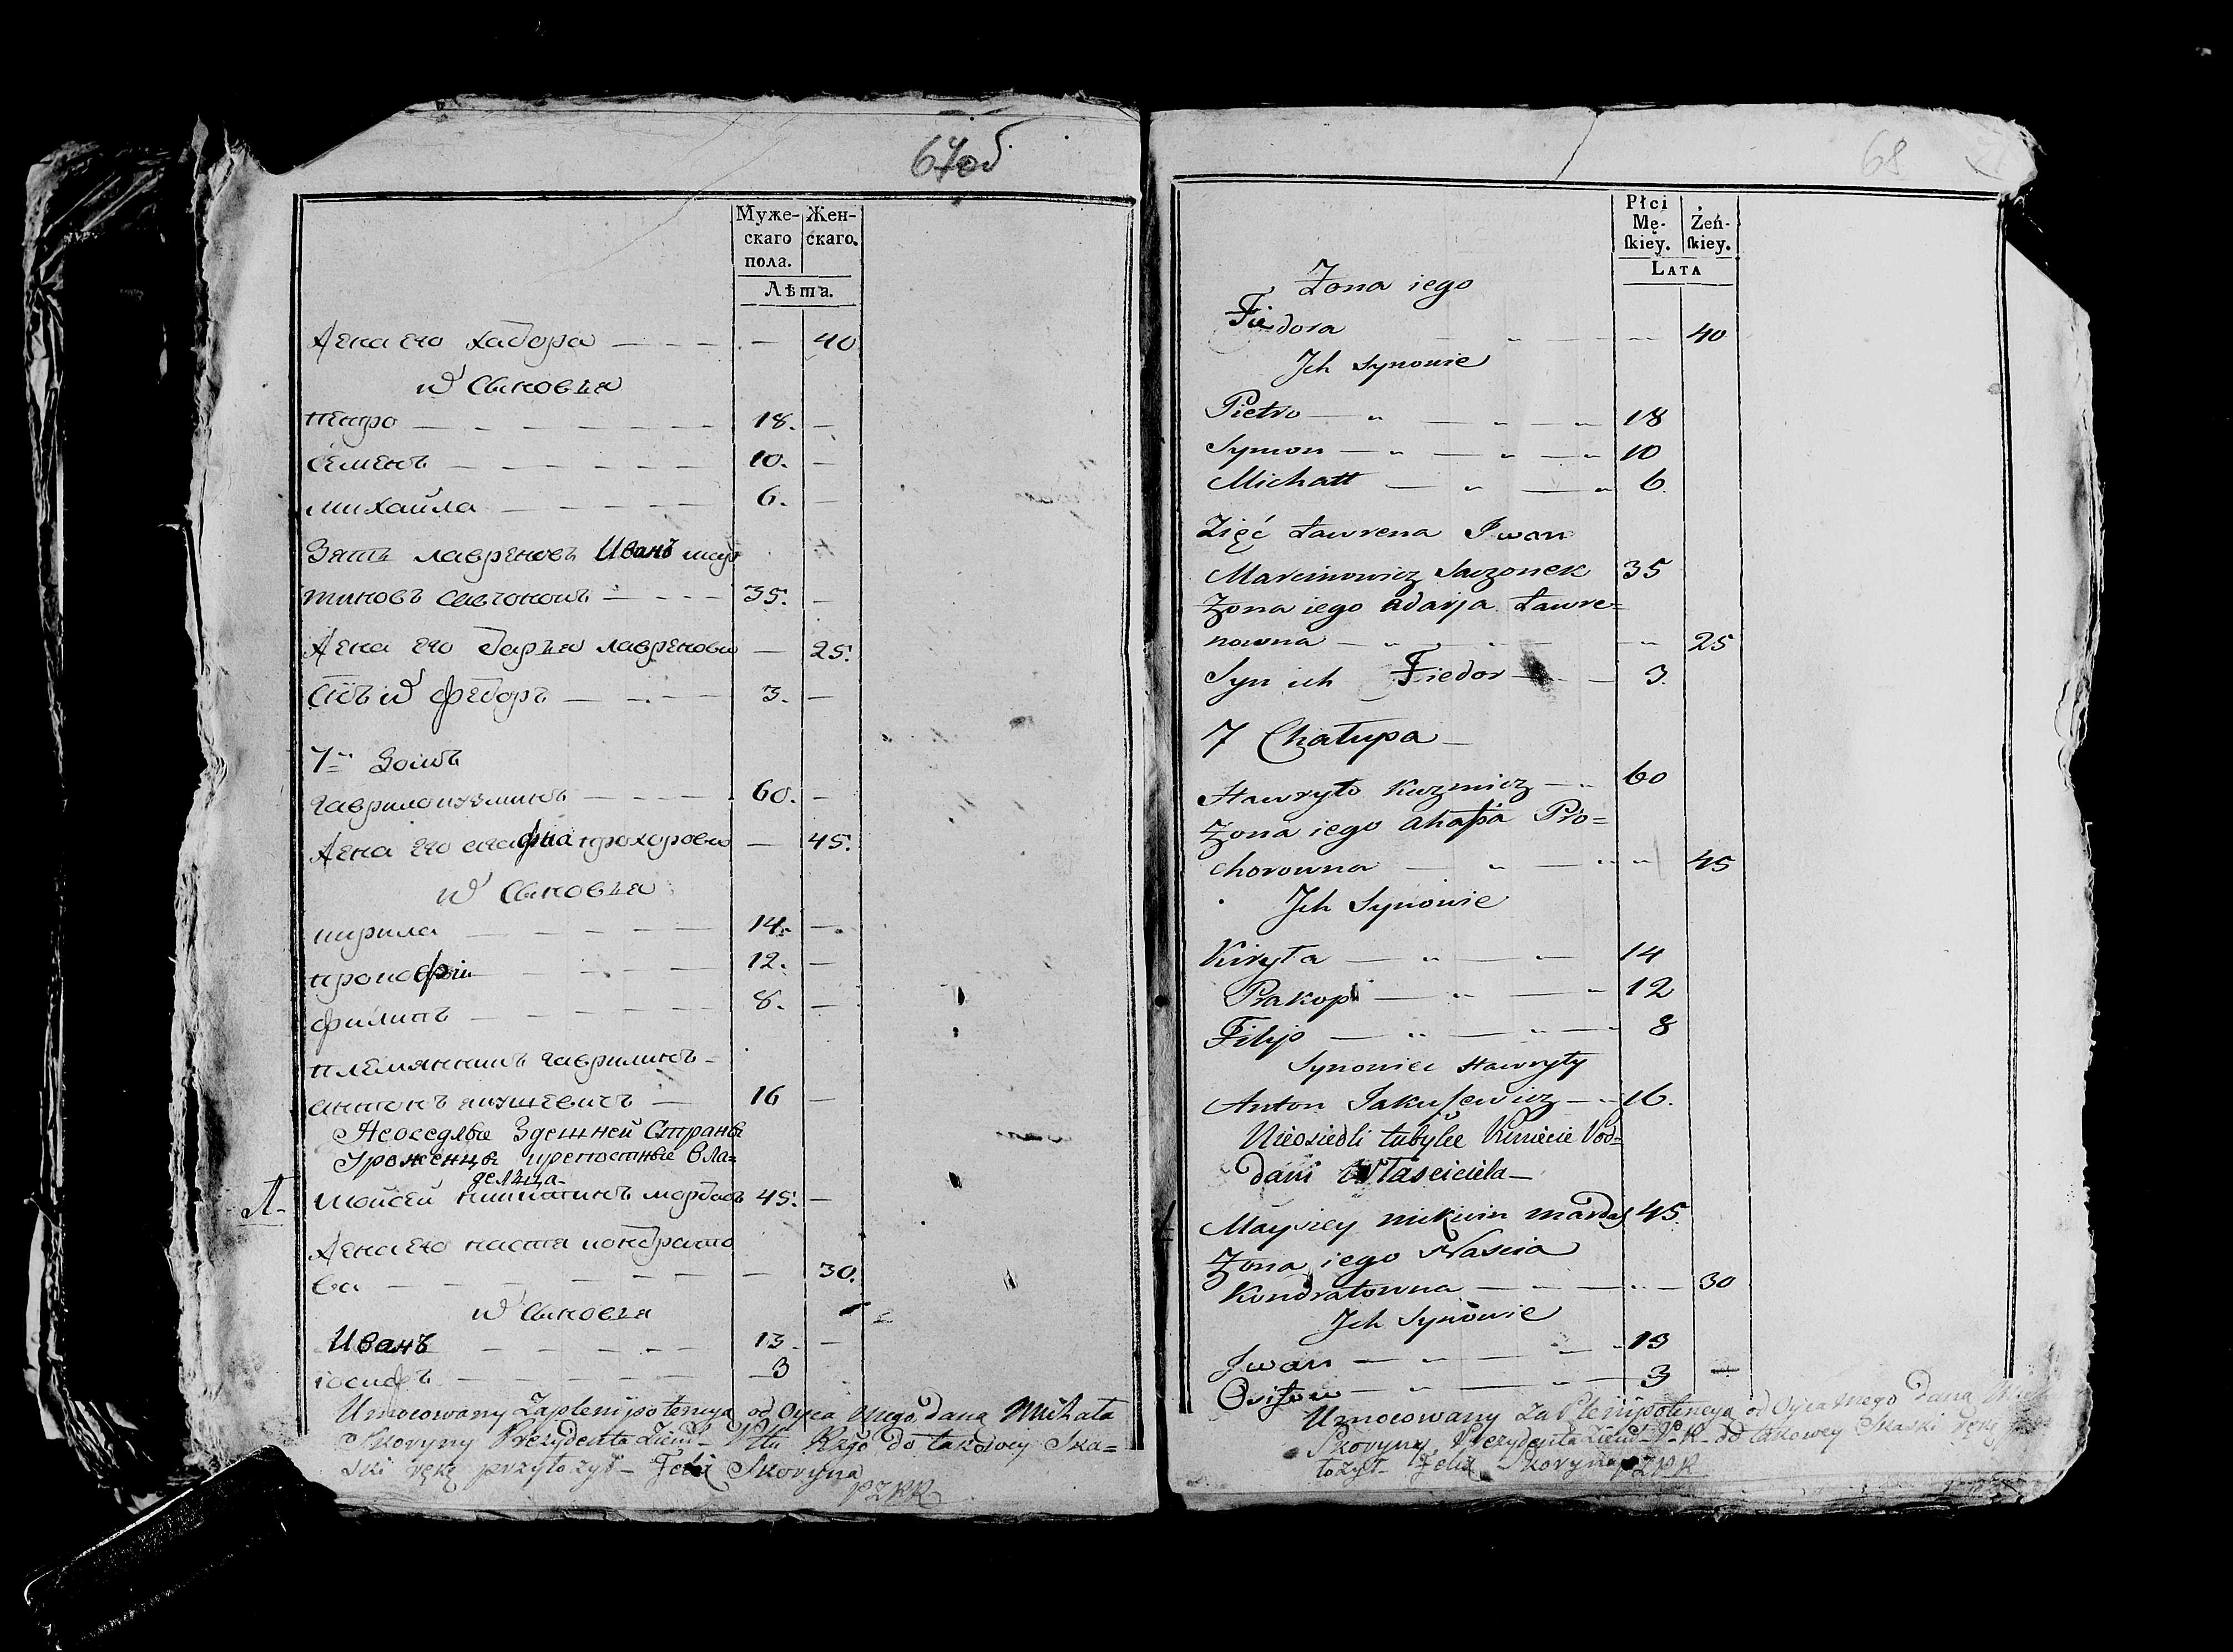 67об
Муже-
скаго
пола.
Жен-
скаго.
Лѣта.
Жена его хадора — 40
их Сыновья
петро 18. —
семенъ 10. —
михайла 6. —
Зять лавреновъ Иванъ мар
тиновъ 35. —
Жена его дарья лавренова — 25.
их федоръ 3. —
7й Домъ
гаврило кузминъ 60. —
Жена его агафиа прохорова — 45.
их Сыновья
кирила 14. —
прокофій 12. —
филипъ 8. —
племянникъ гаврилинъ
антонъ якушевичъ 16 —
Неоседлые Здешней Страны
Уроженцы крепостные вла=
дельца
Л-
мойсей никитинъ мордасъ 45. —
Жена его настя кондрато
ва — 30.
их Сыновья
Иванъ 13. —
іосифъ 3
Umocowany Zaplenipotencyą od Oyca mego daną Michała
Skoryny Prezydenta Ziems. Pttu Rzgo do takowey Ska=
ski rękę przyłożył – Felix Skoryna
PZPR
68
Płci
Mę-
ſkiey.
Żeń-
ſkiey.
Lata
Zona iego
Fiedora 40
Jch Synowie
Pietro 18
Symon 10
Michałł 6
Zięć Ławrena Jwan
Marcinowicz Saczonek 35
Zona iego adarja Ławre=
nowna 25
Syn ich Fiedor 3.
7 Chałupa
Hawryło Kuzmicz 60
Zona iego ahapa Pro=
chorowna 45
Jch Synowie
Kiryła 14
Prakop 12
Filip 8
Synowiec Hawryły
Anton Jakuſewicz 16.
Nieosiedli tubylce Kmiecie Pod=
dani Własciciela
Mayſiey nikicin mardaſ 45.
Zona iego Nascia
Kondratowna 30
Jch Synowie
Jwan 13
Osif 3
Umocowany Za Plenipotencyą od Oyca mego daną
Skoryny, Prezydenta Ziems. P. R. do takowey Skaski rękę
łożył – Felix Skoryna PZPR